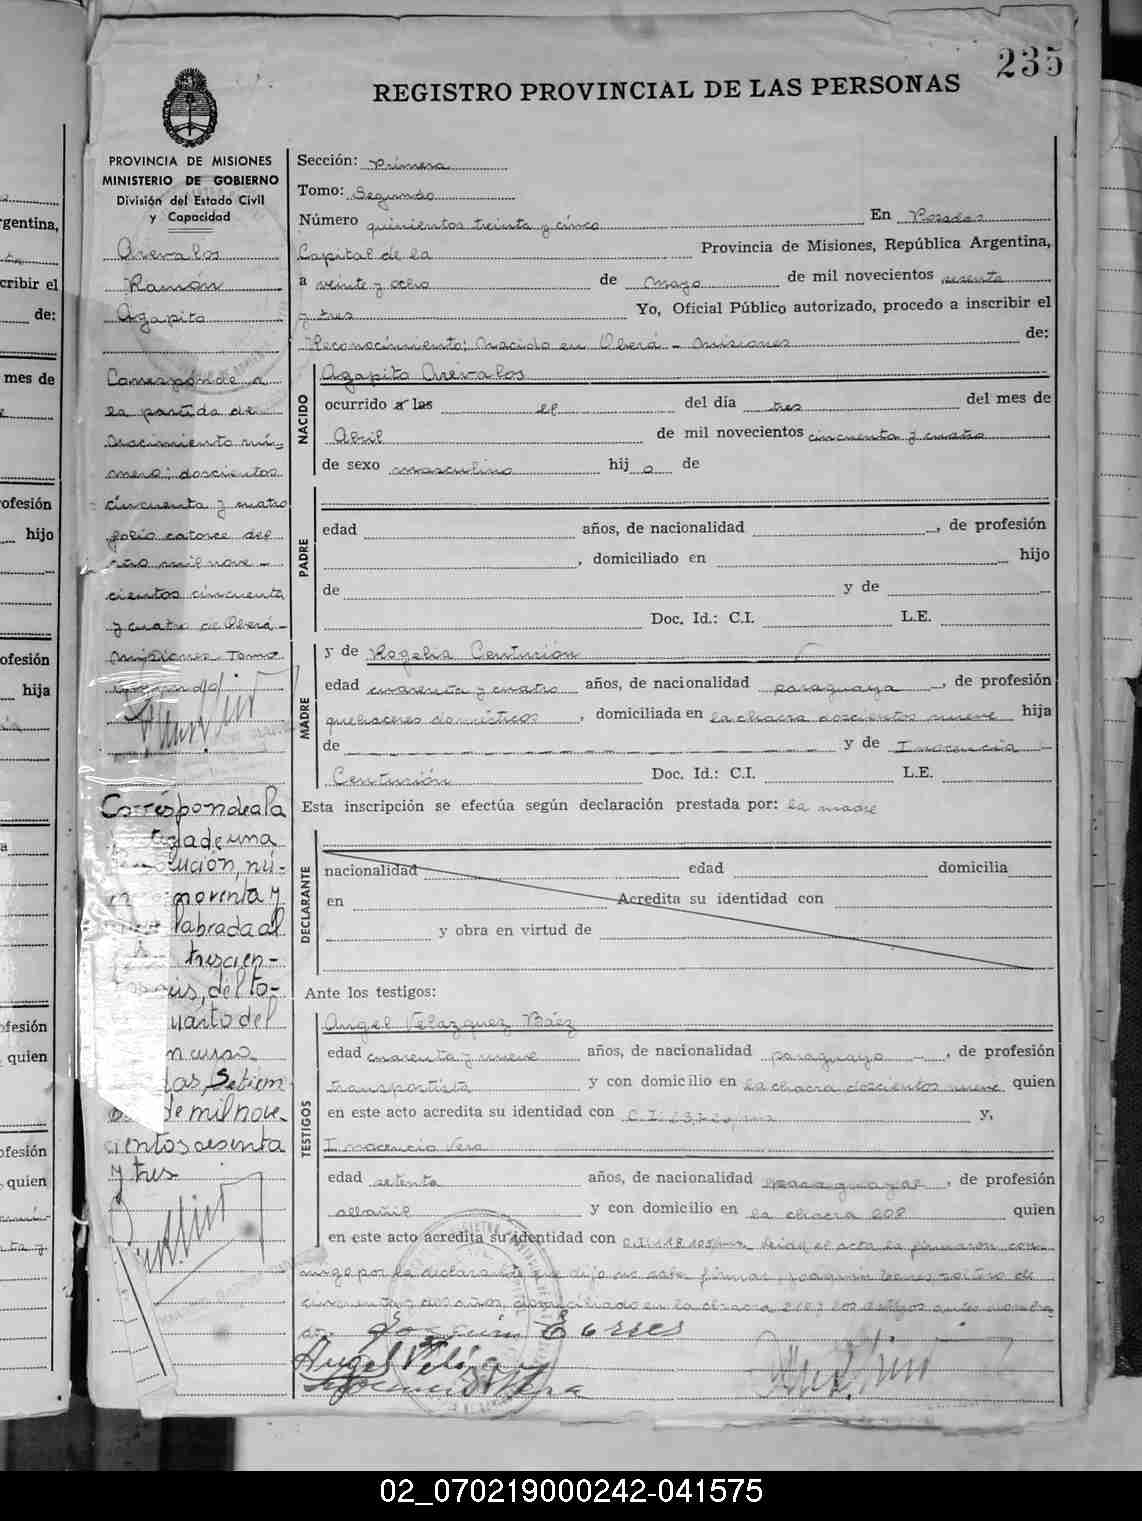 235
REGISTRO PROVINCIAL DE LAS PERSONAS
PROVINCIA DE MISIONES
MINISTERIO DE GOBIERNO
División del Estado Civil
y Capacidad
Arevalos
Ramón
Agapito
Corresponde a
la partida de
nacimiento nú-
mero: doscientos
cincuenta y cuatro
folio catorce del
año mil nove-
cientos cincuenta
y cuatro de Oberá-
Misiones Tomo
Corresponde a la
de una
nú-
noventa y
labrada al
trescien-
del to-
cuarto del
en curso
Setiem
de mil nove-
cientos sesenta
y tres
Sección: Primera
Tomo: Segundo
Número quinientos treinta y cinco En Posadas
Capital de la Provincia de Misiones, República Argentina,
a veinte y ocho de Mayo de mil novecientos sesenta
y tres Yo, Oficial Público autorizado, procedo a inscribir el
Reconocimiento: Nacido en Oberá - Misiones de:
NACIDO
Agapito Arevalos
ocurrido a las el del día tres del mes de
Abril de mil novecientos cincuenta y cuatro
de sexo masculino hij o de
PADRE
edad años, de nacionalidad , de profesión
, domiciliado en hijo
de y de
Doc. Id.: C.I. L.E.
MADRE
y de Rogelia Centurión
edad cuarenta y cuatro años, de nacionalidad paraguaya , de profesión
quehaceres domésticos , domiciliada en la chacra doscientos nueve hija
de y de Inocencia
Centurión Doc. Id.: C.I. L.E.
Esta inscripción se efectúa según declaración prestada por: la madre
DECLARANTE
nacionalidad edad domicilia
en Acredita su identidad con
y obra en virtud de
Ante los testigos:
TESTIGOS
Angel Velazquez Báez
edad cuarenta y nueve años, de nacionalidad paraguayo , de profesión
transportista y con domicilio en la chacra doscientos nueve quien
en este acto acredita su identidad con C.I. y,
Inocencio Vera
edad setenta años, de nacionalidad paraguaya , de profesión
albañil y con domicilio en la chacra 208 quien
en este acto acredita su identidad con C.I. leida el acta la firmaron con-
migo por la declarante que dijo no saber firmar, Joaquin Torres soltero de
cincuenta y dos años, domiciliado en la chacra y los testigos antes nombra
dos. Joaquin Torres
Angel Velazq
Inocencio Vera
02_070219000242-041575